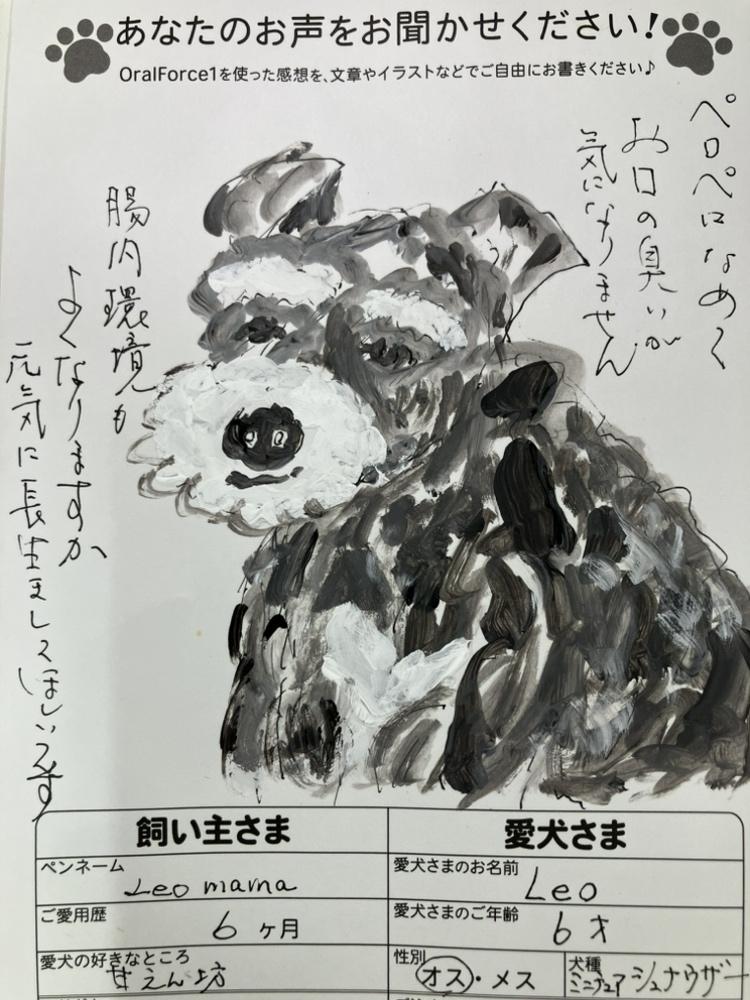 あなたのお声をお聞かせください!
OralForce1を使った感想を、文章やイラストなどでご自由にお書きください♪
ペロペロなめて
お口の臭いが
気になりません
腸内環境も
よくなりますか
元気に長生きしてほしいです
飼い主さま
愛犬さま
ペンネーム
Leo mama
愛犬さまのお名前
Leo
ご愛用歴
6ヶ月
愛犬さまのご年齢
6才
愛犬の好きなところ
甘えん坊
性別
オス・メス
犬種
ミニチュアシュナウザー